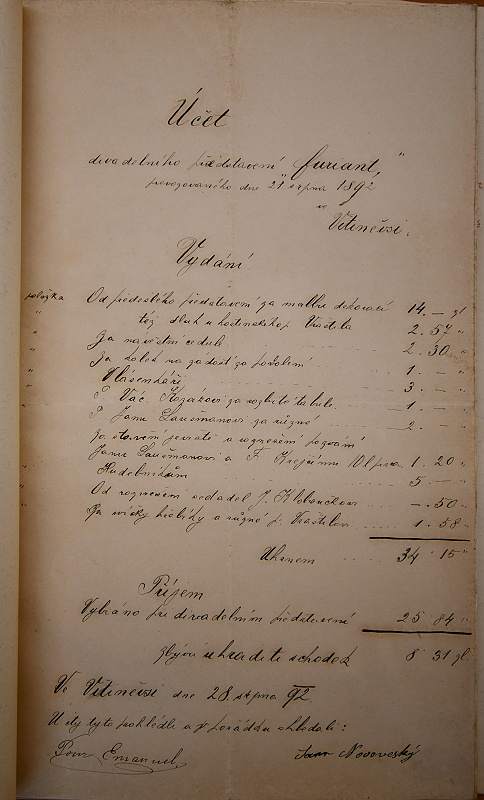 Účet
divadelního představení „furiant"
provozovaného dne 21. srpna 1892
ve
Vtinčvsi.
Vydání
položka Od předešlého představení za malbu dekorací 14. — zl
" též dluh u hostinského p. Vraštila 2. 54 "
" Za návěstní cedule 2. 30 "
" Za kolek na žádost za povolení 1. — "
" Vlásenkáři 3. — "
" P. Vac. Kozákovi za rozbité tabule 1. — "
P. Janu Laušmanovi za různé 2. —
Za stavení jeviště a roznešení pozvání
Janu Laušmanovi a F. Krejčímu 1 20 "
Hudebníkům 5 — "
Od roznešení sedadel J. Kloboučkovi —. 50 "
Za svíčky hřebíky a různé p. Vraštilovi 1. 58 "
Úhrnem 34 15 "
Příjem
Vybráno při divadelním představení 25 84 "
zbývá uhraditi schodek 8 31 zl.
Ve Vtinčvsi dne 28. srpna 92.
Účty tyto pohlédli a v pořádku shledali:
Pour Emanuel Jan Novoveský